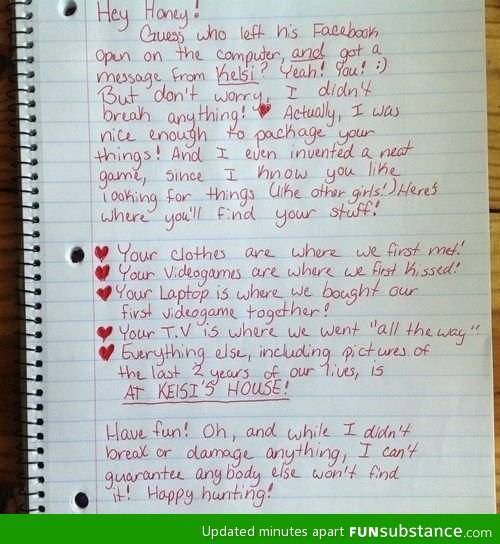 Hey Honey!
Guess who left his Facebook
open on the computer, and got a
message from Kelsi? Yeah! You! :)
But don't worry, I didn't
break anything! ♥ Actually, I was
nice enough to package your
things! And I even invented a neat
game, since I know you like
looking for things (like other girls!) Here's
where you'll find your stuff!
♥ Your clothes are where we first met!
♥ Your Videogames are where we first kissed!
♥ Your Laptop is where we bought our
first videogame together!
♥ Your T.V is where we went "all the way"
♥ Everything else, including pictures of
the last 2 years of our lives, is
AT KELSI'S HOUSE!
Have fun! Oh, and while I didn't
break or damage anything, I can't
guarantee anybody else won't find
it! Happy hunting!
Updated minutes apart FUNsubstance.com